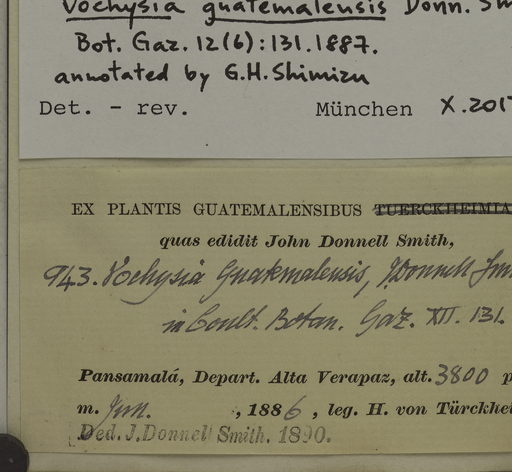 Vochysia guatemalensis Donn. Sm
Bot. Gaz. 12(6):131.1887.
annotated by G.H.Shimizu
Det. - rev. München X.201
EX PLANTIS GUATEMALENSIBUS TUERCKHEIMIA
quas edidit John Donnell Smith,
943. Vochysia Guatemalensis, J.Donnell Smi
in Coult. Botan. Gaz. XII. 131.
Pansamalá, Depart. Alta Verapaz, alt. 3800 p
m. Jun. , 1886 , leg. H. von Türckhei
Ded. J. Donnell Smith. 1890.